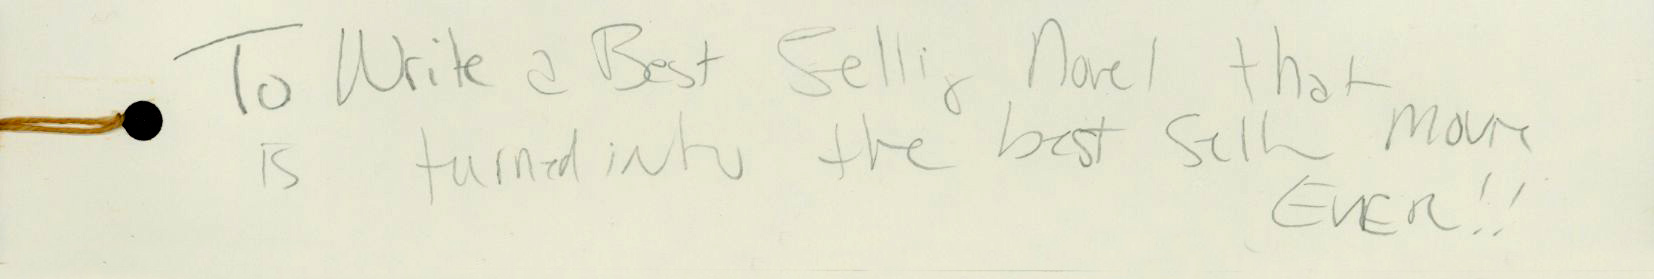 To Write a Best Sellig Novel that
is turned into the best Selln Movie
EVER!!